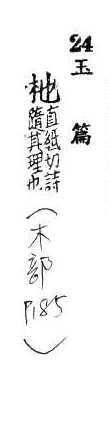 24
玉篇
杝直紙切詩
隨其理也
(木部
P185)